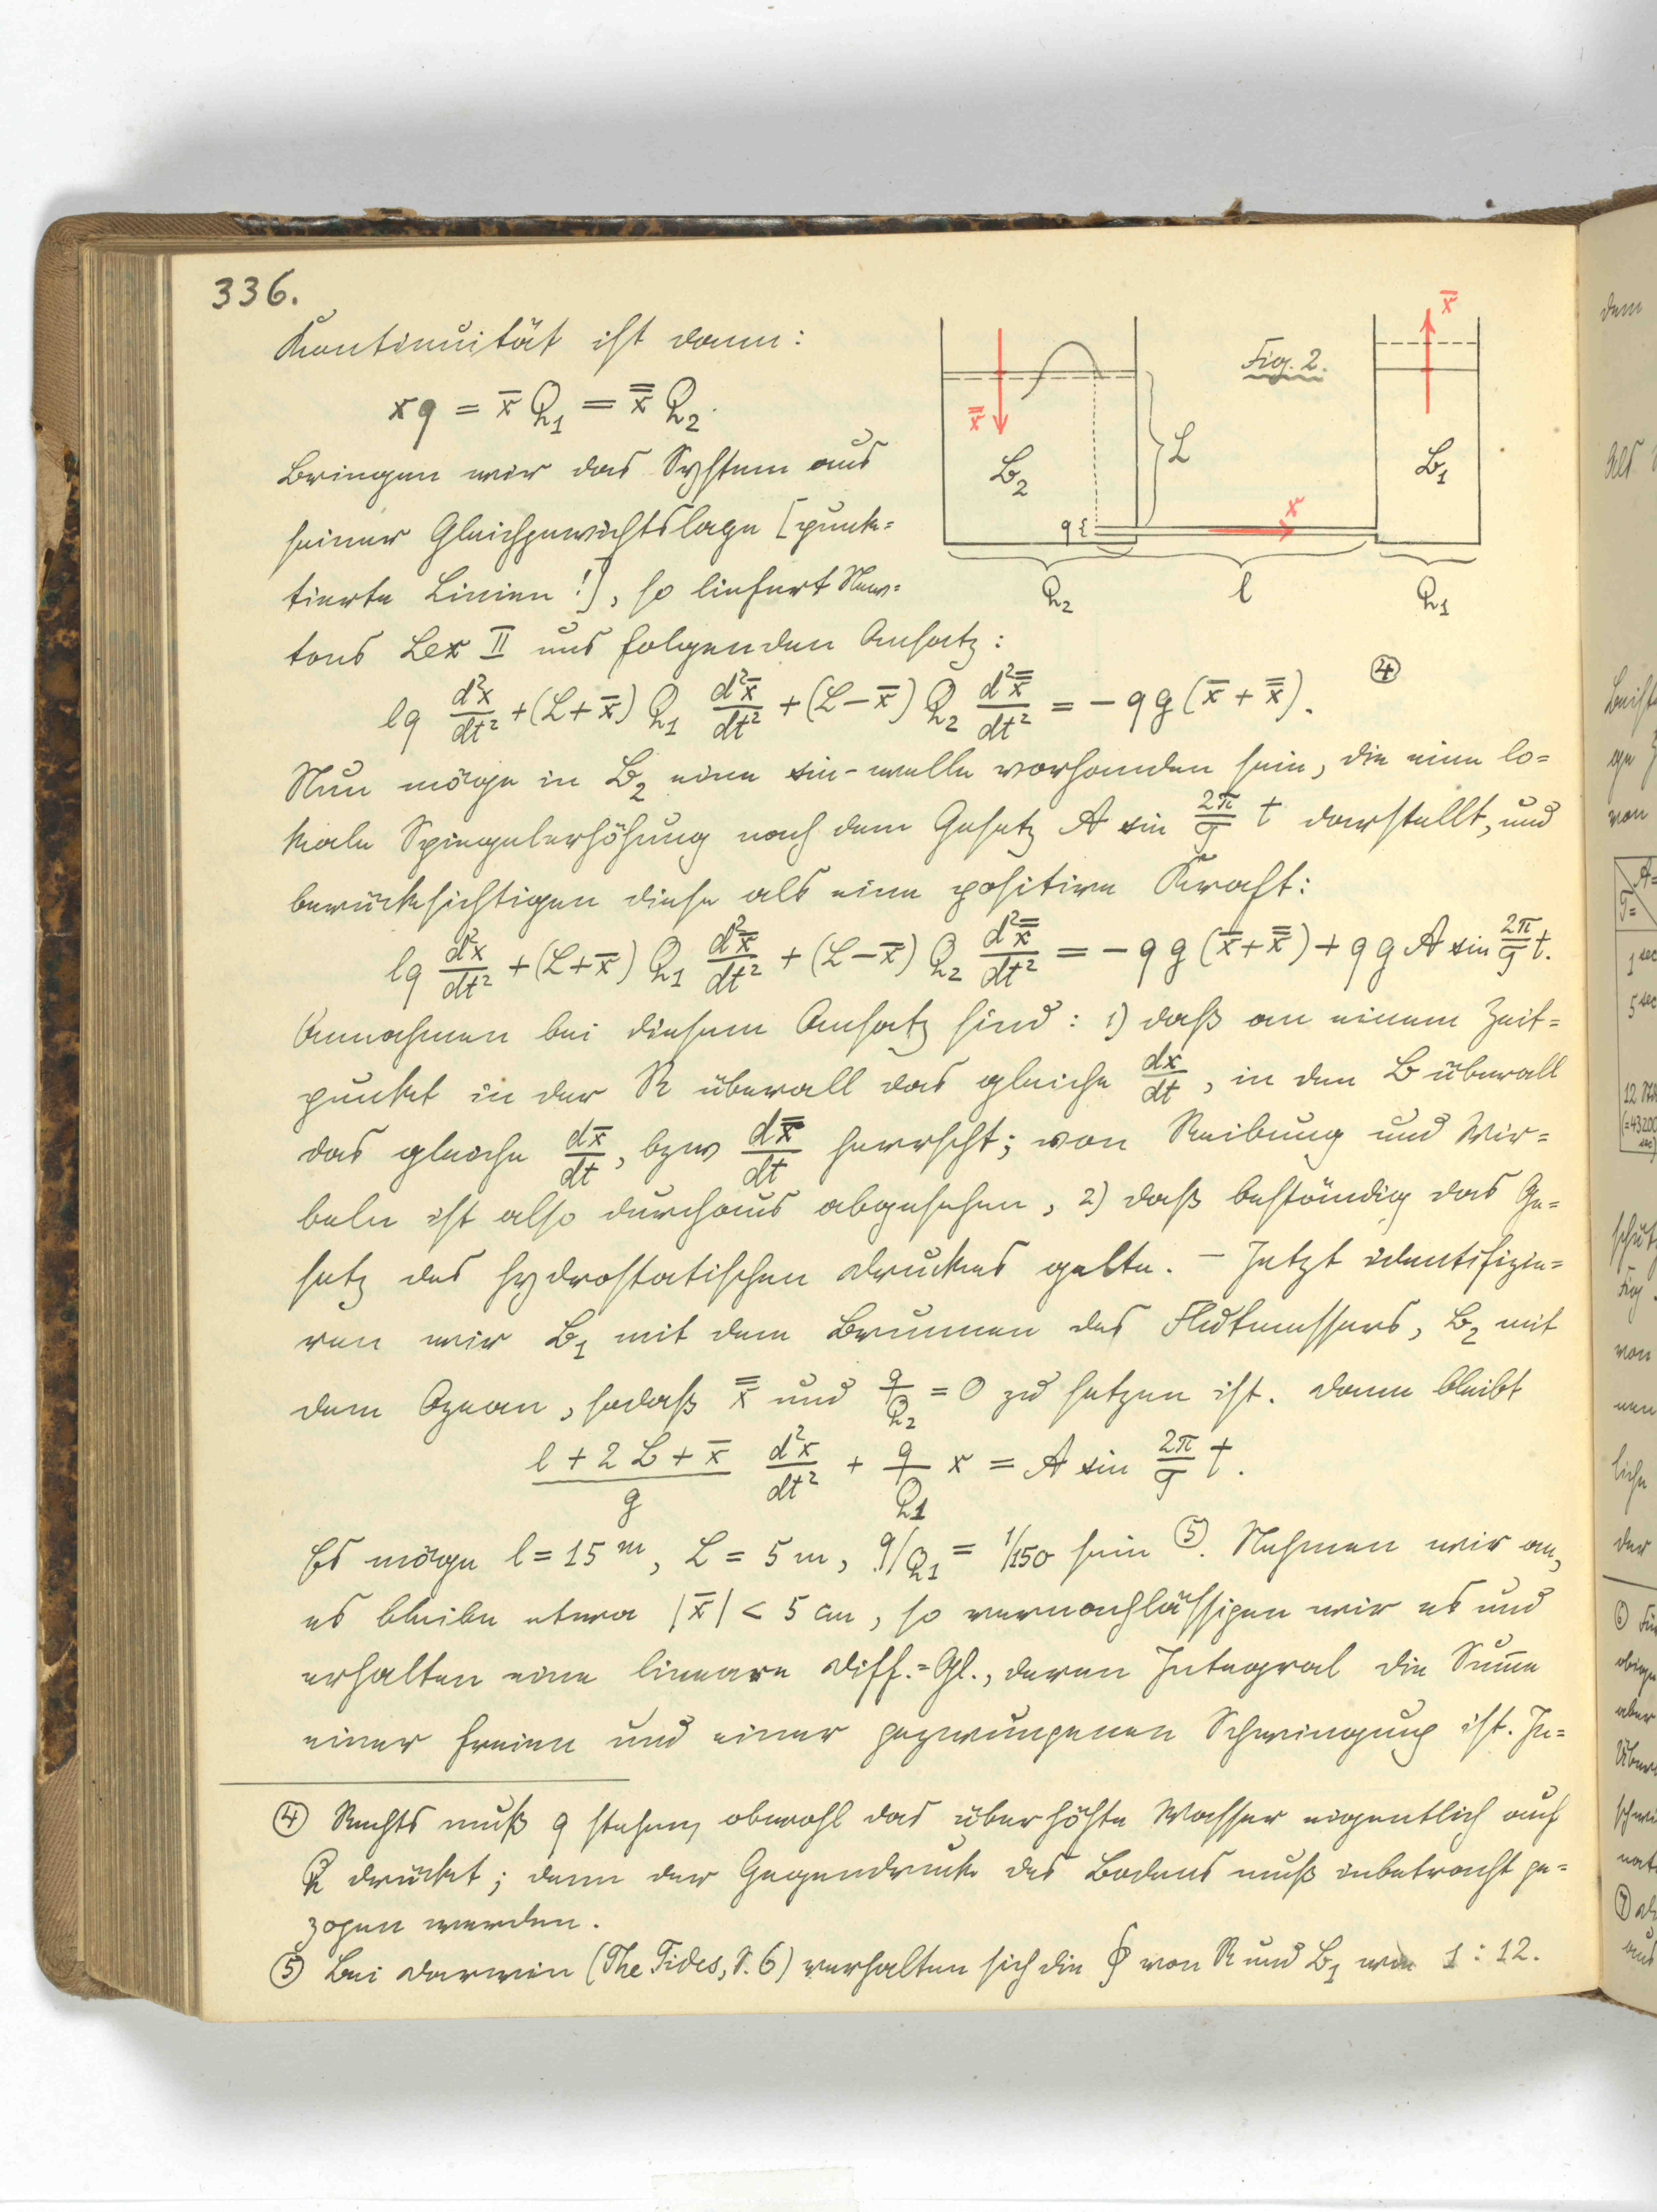 336.
Kontinuität ist dann:
xq = x̄ Q₁ = x̿ Q₂.
Bringen wir das System aus
seiner Gleichgewichtslage [punk=
tierte Linien!], so liefert New=
tons Lex II uns folgenden Ansatz:
Fig. 2.
x̄
x̿
B₂
L
B₁
q{
x
Q₂
l
Q₁
lq d²x/dt² + (L+x̄) Q₁ d²x̄/dt² + (L−x̿) Q₂ d²x̿/dt² = − q g (x̄ + x̿). ④
Nun möge in B₂ eine sin-welle vorhanden sein, die eine lo=
kale Spiegelerhöhung nach dem Gesetz A sin 2π/T t darstellt, und
berücksichtigen diese als eine positive Kraft:
lq d²x/dt² + (L+x̄) Q₁ d²x̄/dt² + (L−x̿) Q₂ d²x̿/dt² = − q g (x̄+x̿) + q g A sin 2π/T t.
Annahmen bei diesem Ansatz sind: 1) daß an einem Zeit=
punkt in der R überall das gleiche dx/dt, in den B überall
das gleiche dx̄/dt, bzw dx̿/dt herrscht; von Reibung und Wir=
beln ist also durchaus abgesehen, 2) daß beständig das Ge=
setz des hydrostatischen Druckes gelte. – Jetzt identifizie=
ren wir B₁ mit dem Brunnen des Flutmessers, B₂ mit
dem Ozean, sodaß x̿ und q/Q₂ = 0 zu setzen ist. Dann bleibt
(l + 2L + x̄)/g d²x/dt² + q/Q₁ x = A sin 2π/T t.
Es möge l = 15 m, L = 5 m, q/Q₁ = 1/150 sein ⑤. Nehmen wir an,
es bleibe etwa |x̄| < 5 cm, so vernachlässigen wir es und
erhalten eine lineare Diff.=Gl., deren Integral die Sum̄e
einer freien und einer gezwungenen Schwingung ist. Je=
④ Rechts muß q stehen, obwohl das überhöhte Wasser eigentlich auf
Q drückt; denn der Gegendruck des Bodens muß inbetracht ge=
zogen werden.
⑤ Bei Darwin (The Tides, S. 6) verhalten sich die ∮ von R und B₁ wie 1 : 12.